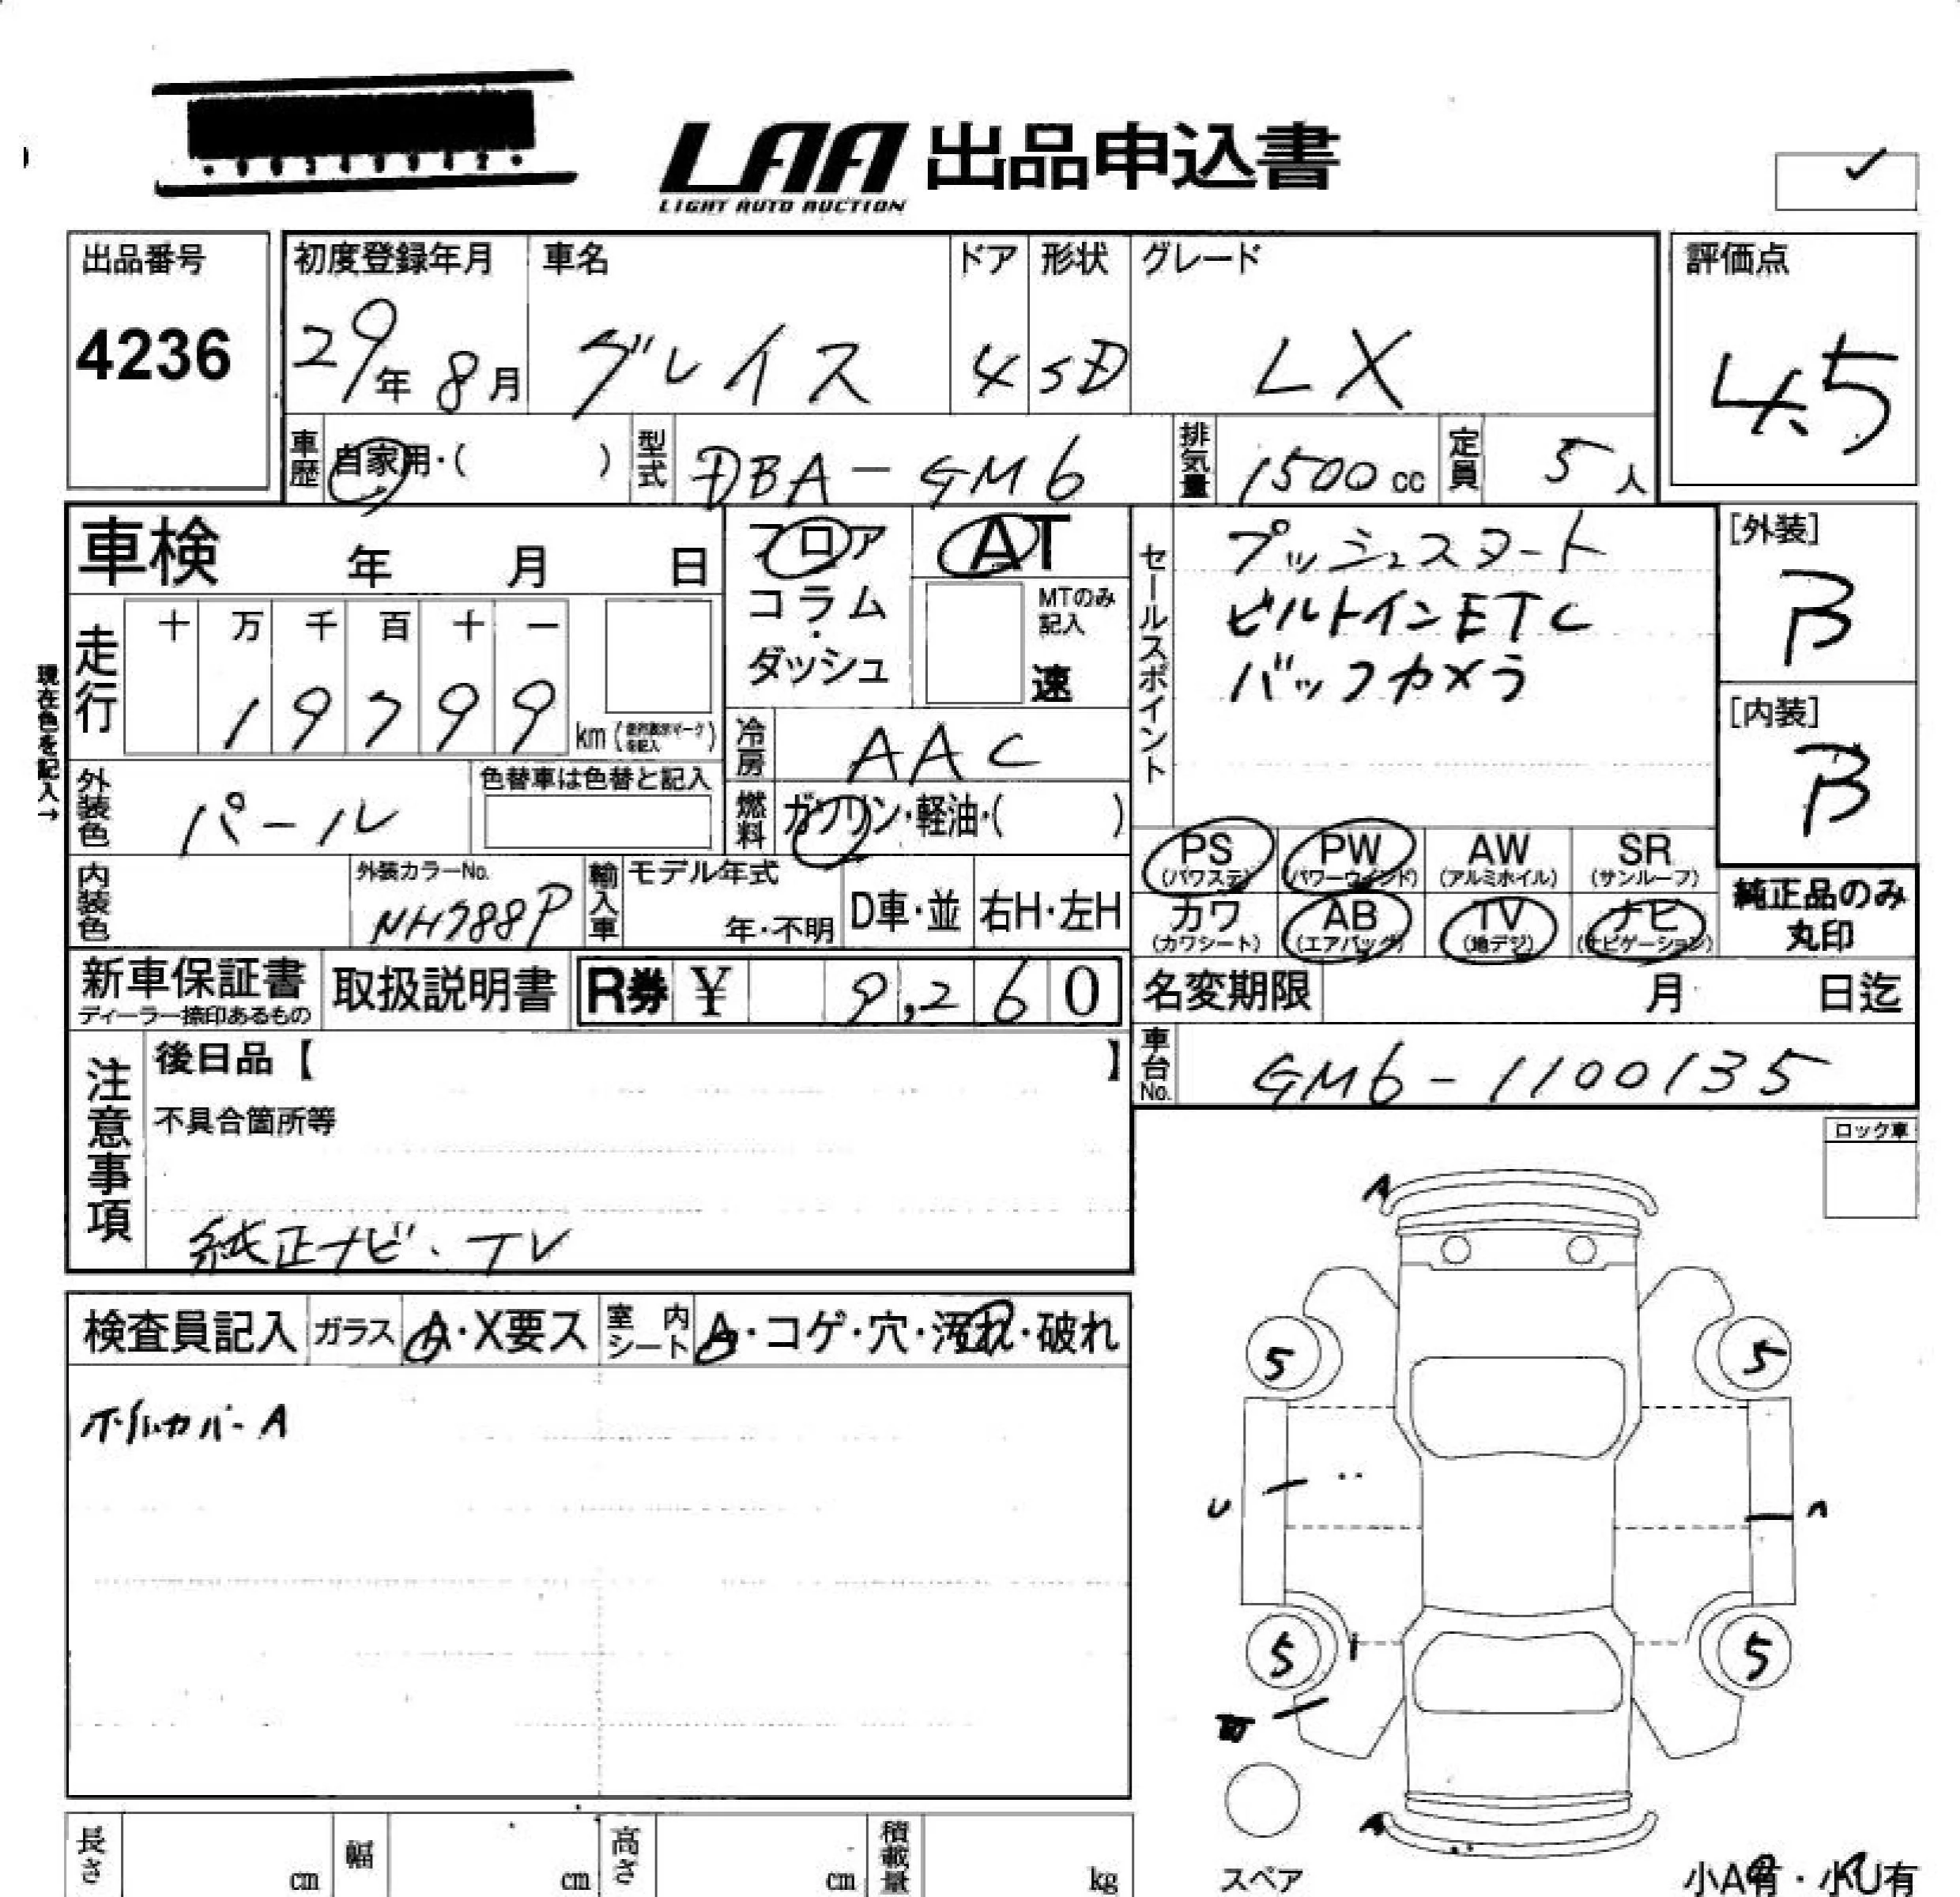 LAA 出品申込書
LIGHT AUTO AUCTION
出品番号
4236
初度登録年月
29年 8月
車名
グレイス
ドア
4
形状
SD
グレード
LX
評価点
4.5
車歴 自家用・( )
型式 DBA-GM6
排気量 1500 cc
定員 5人
車検 年 月 日
フロア
コラム・
ダッシュ
AT
MTのみ記入
速
セールスポイント
プッシュスタート
ビルトインETC
バックカメラ
[外装]
B
[内装]
B
現在色を記入→
走行 十 万 千 百 十 一
19799 km
冷房 AAC
外装色 パール
色替車は色替と記入
燃料 ガソリン・軽油・( )
PS (パワステ)
PW (パワーウィンド)
AW (アルミホイル)
SR (サンルーフ)
カワ (カワシート)
AB (エアバッグ)
TV (地デジ)
ナビ (ナビゲーション)
純正品のみ
丸印
内装色
外装カラーNo.
NH788P
輸入車 モデル年式
年・不明
D車・並
右H・左H
新車保証書
ディーラー捺印あるもの
取扱説明書
R券 ¥ 9,260
名変期限 月 日迄
車台No. GM6-1100135
注意事項
後日品【 】
不具合箇所等
純正ナビ、TV
ロック車
検査員記入
ガラス A・X要ス
室内シート A・コゲ・穴・汚れ・破れ
ホイルカバーA
A
5
5
U
5
5
A
スペア
小A有・小U有
長さ cm
幅 cm
高さ cm
積載量 kg